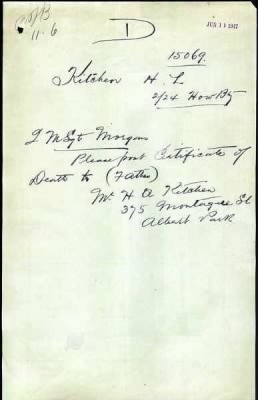 11-6
JUN 11 1917
D
15069.
Kitchen H. L
2/24 How Bty
Sgt Morgan
Please post Certificate of
Death to (Father)
Mr H A Kitchen
375 Montague St
Albert Park